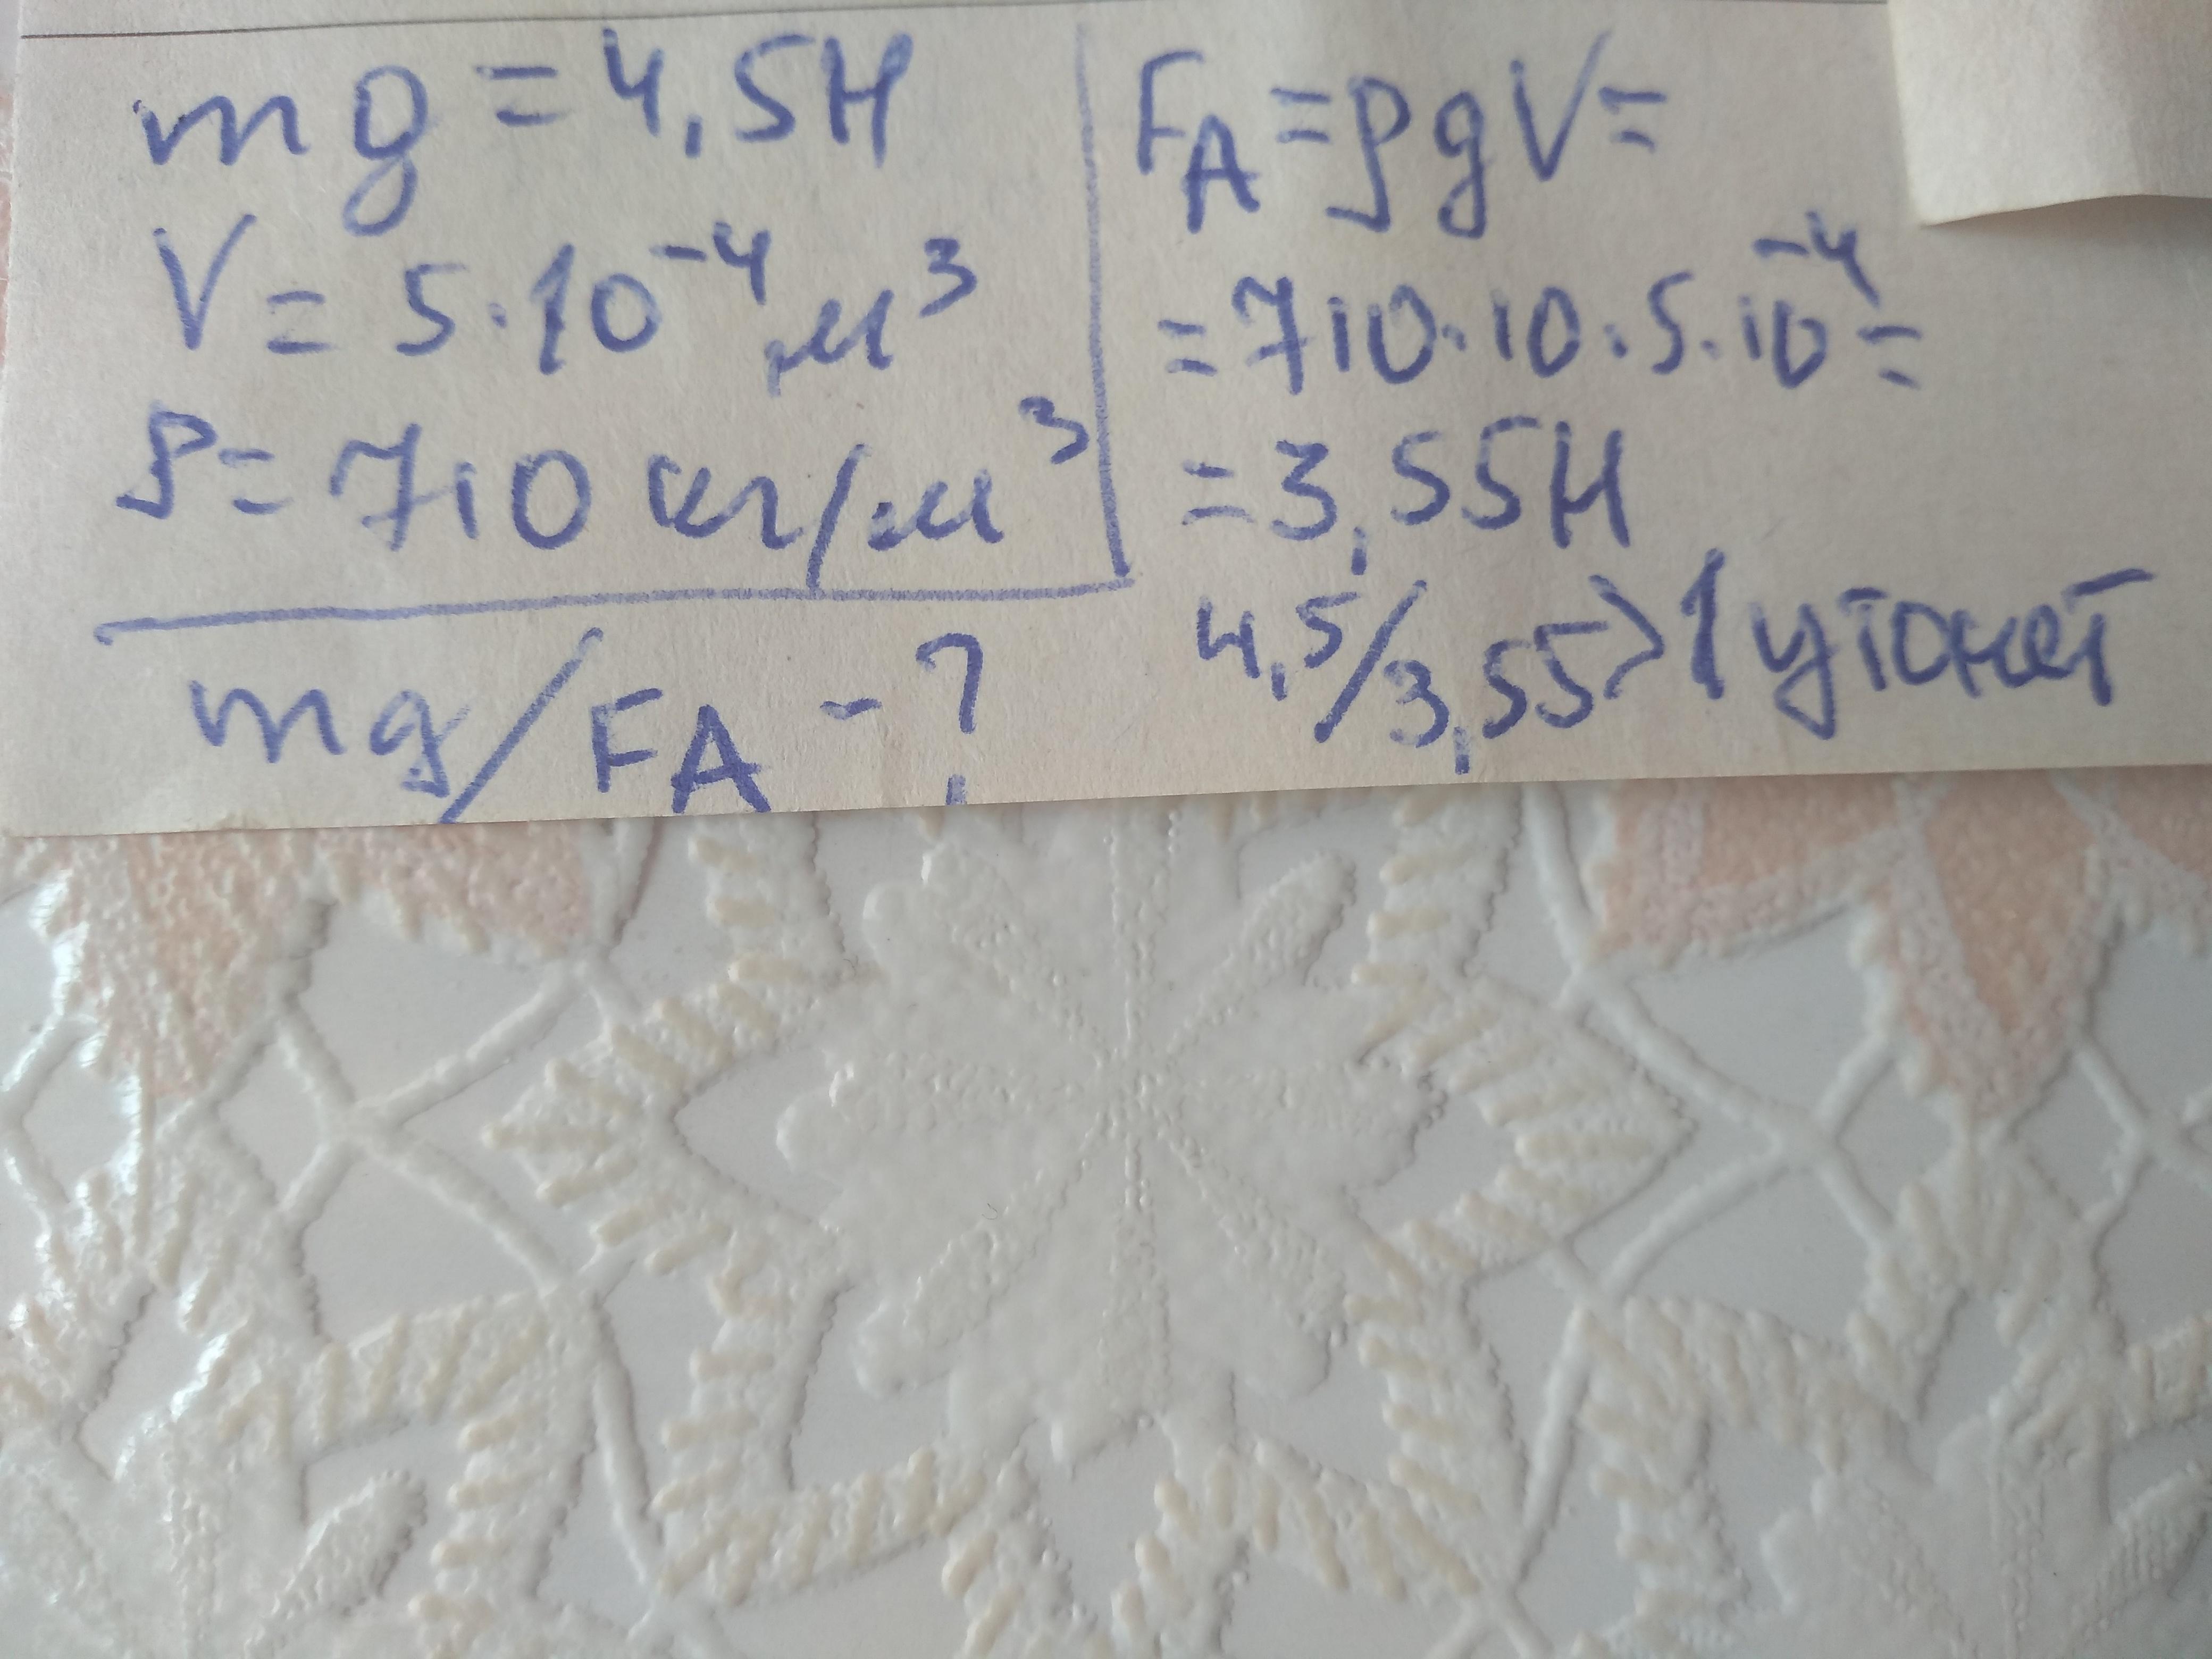 mg = 4,5Н
V = 5·10⁻⁴ м³
ρ = 710 кг/м³
mg/FA - ?
FA = ρgV =
= 710·10·5·10⁻⁴ =
= 3,55Н
4,5/3,55 > 1 утонет